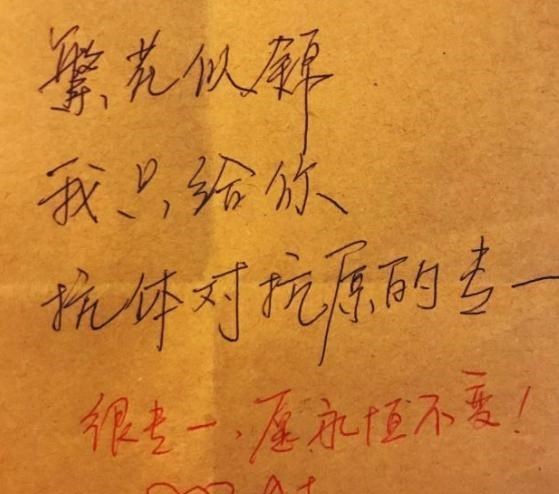 繁花似锦
我只给你
抗体对抗原的专一
很专一、愿永恒不变!